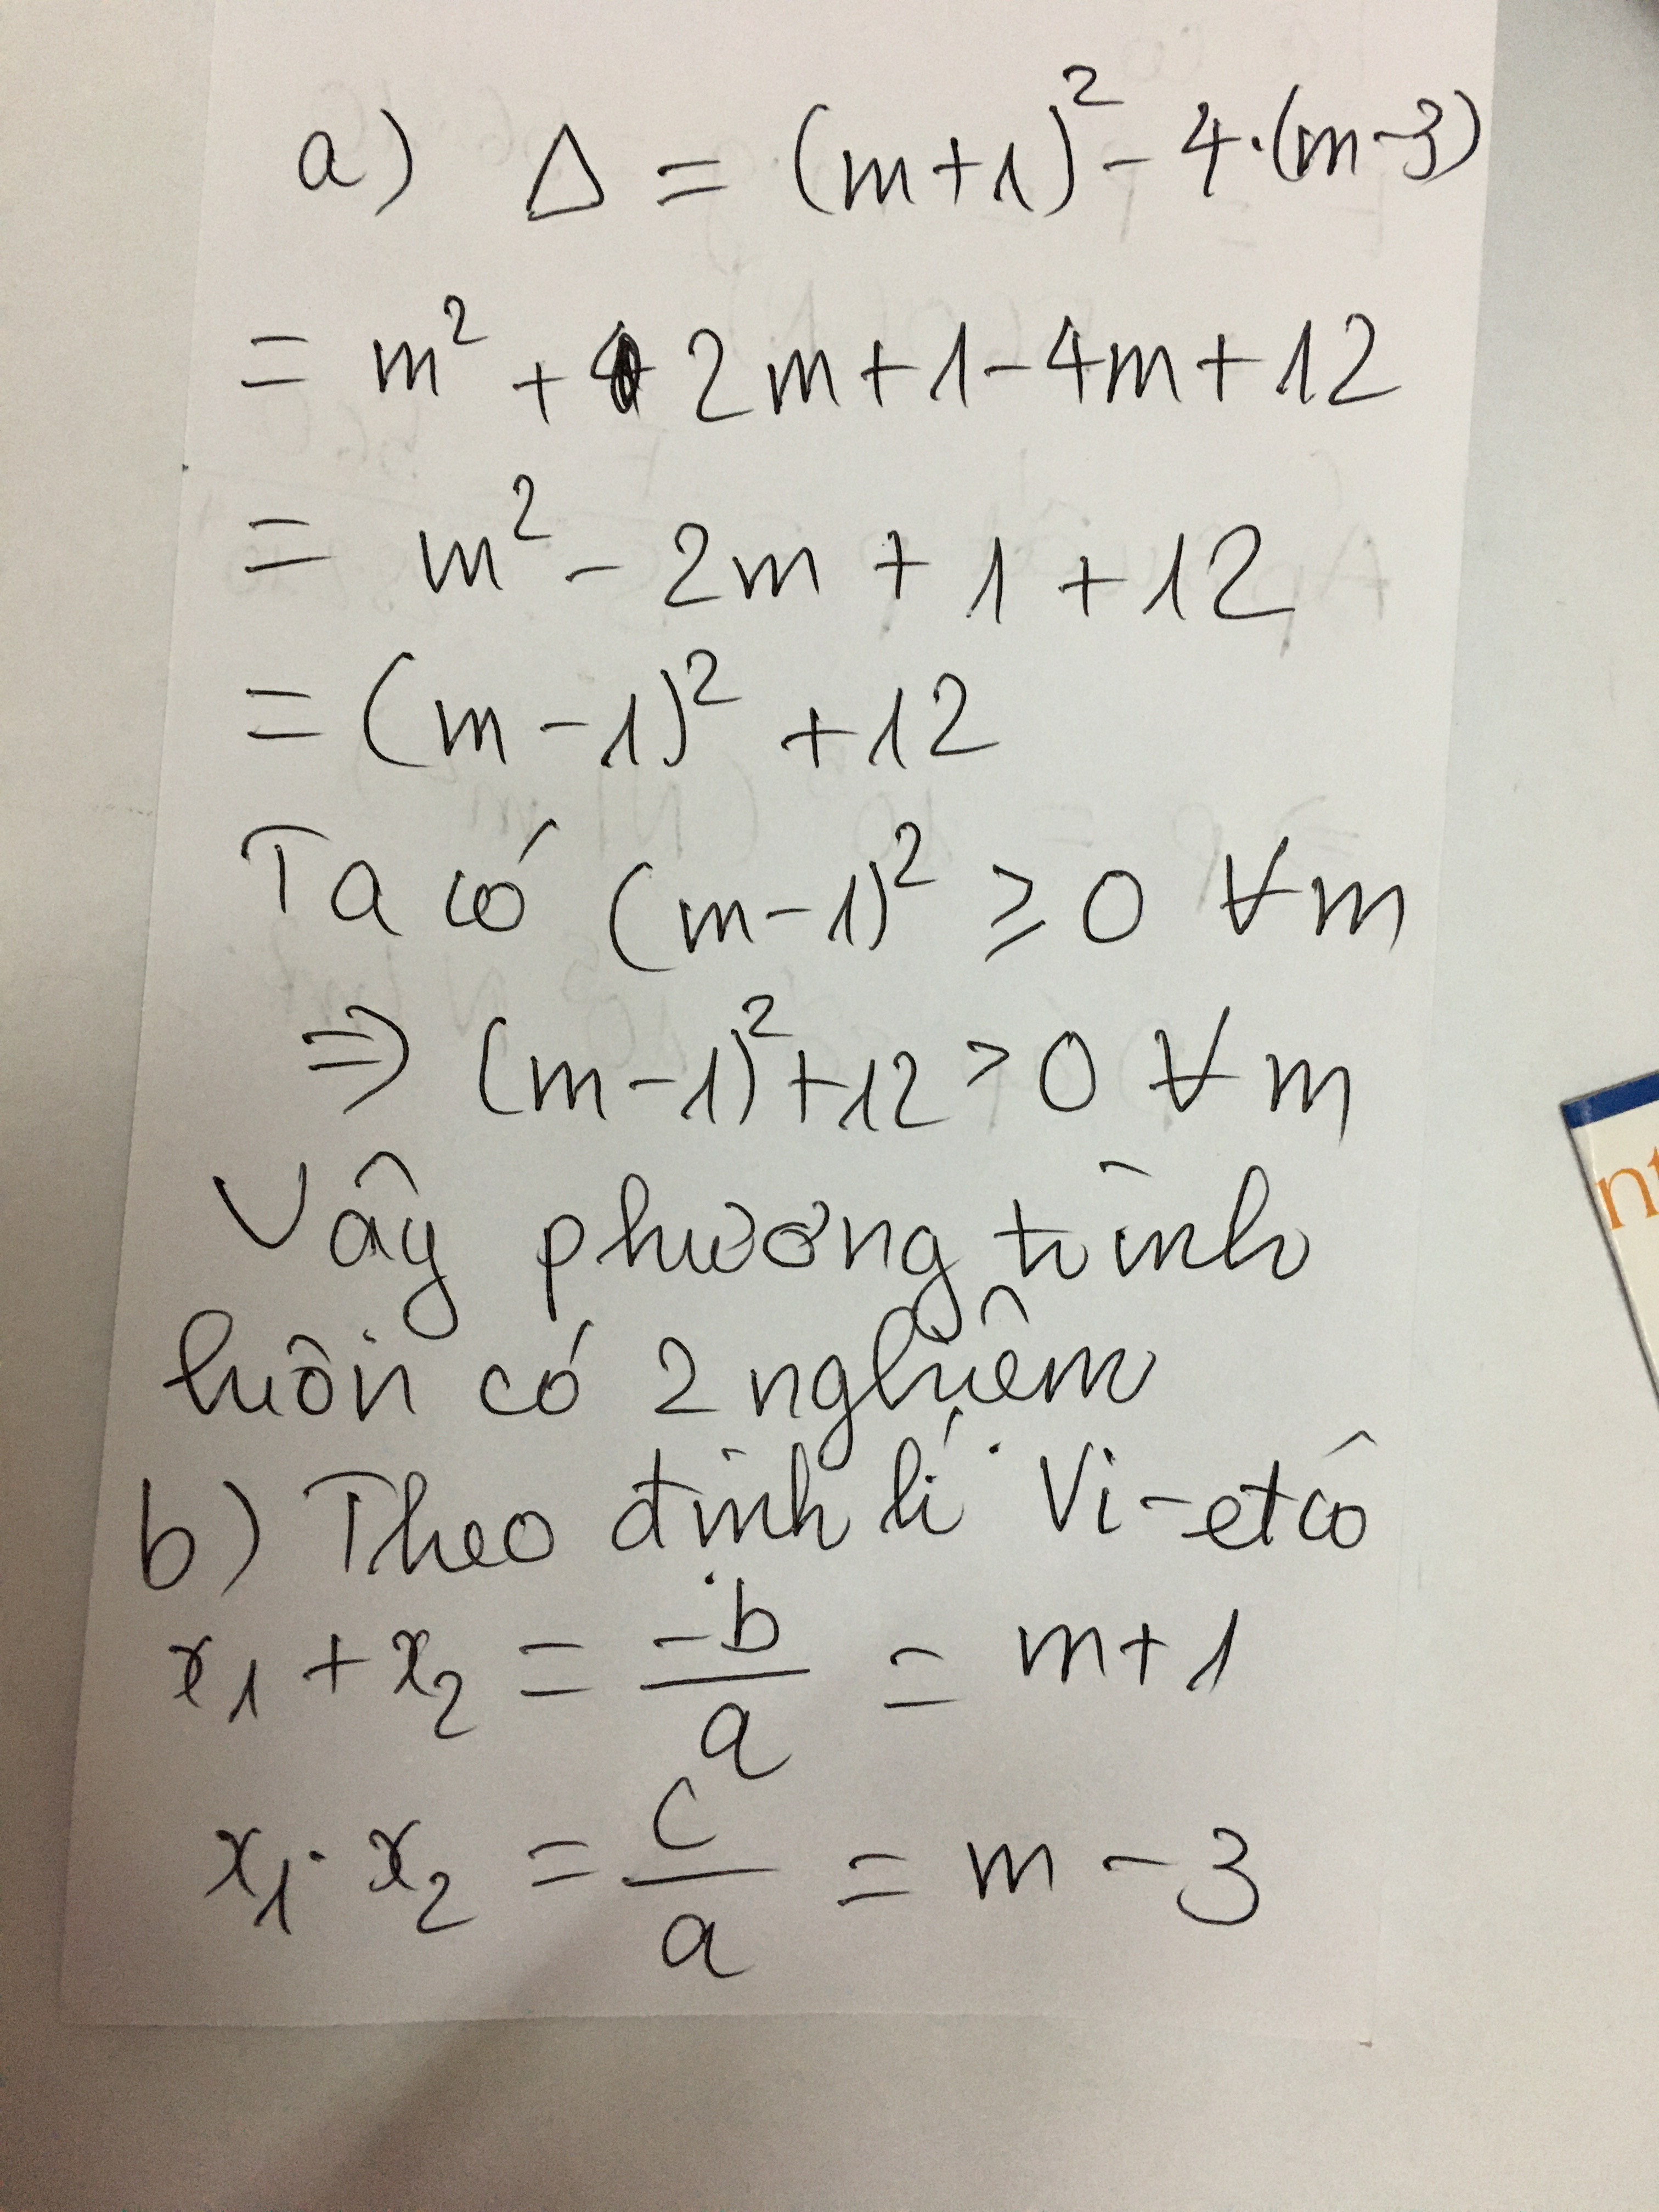 a) Δ = (m+1)² - 4·(m-3)
= m² + 2m+1-4m+12
= m² - 2m + 1 + 12
= (m-1)² +12
Ta có (m-1)² ≥ 0 ∀m
⇒ (m-1)²+12 > 0 ∀m
Vậy phương trình
luôn có 2 nghiệm
b) Theo định lí Vi-et có
x₁ + x₂ = -b/a = m+1
x₁ · x₂ = c/a = m - 3